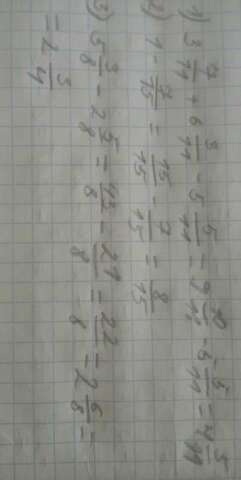 1) 3 7/11 + 6 3/11 - 5 5/11 = 9 10/11 - 5 5/11 = 4 5/11
2) 1 - 7/15 = 15/15 - 7/15 = 8/15
3) 5 3/8 - 2 5/8 = 43/8 - 21/8 = 22/8 = 2 6/8 =
= 2 3/4